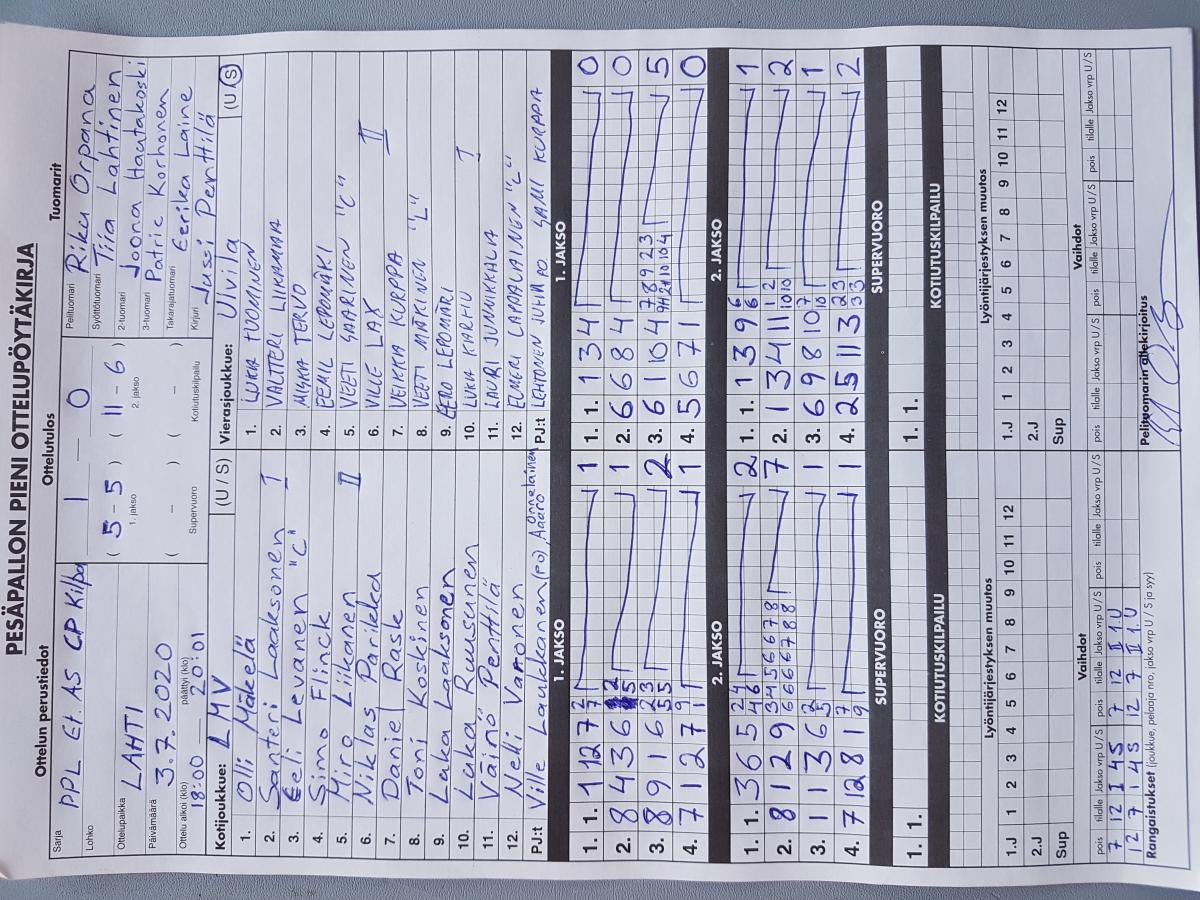 PESÄPALLON PIENI OTTELUPÖYTÄKIRJA
Ottelun perustiedot
Ottelutulos
Tuomarit
Sarja PPL Et. AS CP Kilpa
Lohko
Ottelupaikka LAHTI
Päivämäärä 3.7.2020
Ottelu alkoi (klo) 18:00 päättyi (klo) 20:01
1 — 0
( 5 - 5 ) ( 11 - 6 )
1. jakso 2. jakso
( - ) ( - )
Supervuoro Kotiutuskilpailu
Pelituomari Riku Orpana
Syöttötuomari Tiia Lahtinen
2-tuomari Joona Hautakoski
3-tuomari Patric Korhonen
Takarajatuomari Eerika Laine
Kirjuri Jussi Penttilä
Kotijoukkue: LMV (U / S)
1. Olli Mäkelä
2. Santeri Laaksonen I
3. Eeli Levanen "C"
4. Simo Flinck
5. Miro Liikanen II
6. Niklas Parikka
7. Daniel Rask
8. Toni Koskinen
9. Luka Laaksonen
10. Luka Ruusunen
11. Väinö Penttilä
12. Nelli Varonen
PJ:t Ville Laukkanen (PO), Aaro Onnelainen
Vierasjoukkue: Ulvila (U / S)
1. LUKA TUOMINEN
2. VALTTERI LIIKAMAA
3. MISKA TERVO
4. EEMIL LEPOMÄKI
5. VEETI SAARINEN "C"
6. VILLE LAX
7. VEIKKA KURPPA II
8. VEETI MÄKINEN "L"
9. EERO LEPOMÄKI
10. LUKA KARHU I
11. LAURI JUMIKKALA
12. ELMERI LAPPALAINEN "L"
PJ:t LEHTONEN JUHA PO SAMI KURPPA
1. JAKSO
1. 1. 1 12 7 2 7 1
2. 8 4 3 6 1
3. 8 9 1 6 2 3 5 5 2
4. 7 1 2 7 9 1 1
1. JAKSO
1. 1. 1 3 4 0
2. 6 6 8 4 0
3. 6 1 10 4 7 8 9 2 3 5
4. 5 6 7 1 0
2. JAKSO
1. 1. 3 6 5 2 4 4 6 2
2. 8 1 2 9 3 4 5 5 6 7 8 6 6 6 6 7 8 8 7
3. 1 1 3 6 2 5 1
4. 7 12 8 1 7 9 1
2. JAKSO
1. 1. 1 3 9 6 6 6 1
2. 1 3 4 11 1 2 10 10 2
3. 6 9 8 10 7 10 1
4. 2 5 11 3 2 3 3 3 2
SUPERVUORO
1. 1.
SUPERVUORO
1. 1.
KOTIUTUSKILPAILU
KOTIUTUSKILPAILU
Lyöntijärjestyksen muutos
1.J 1 2 3 4 5 6 7 8 9 10 11 12
2.J
Sup
Lyöntijärjestyksen muutos
1.J 1 2 3 4 5 6 7 8 9 10 11 12
2.J
Sup
Vaihdot
pois tilalle Jakso vrp U / S pois tilalle Jakso vrp U / S pois tilalle Jakso vrp U / S
7 12 1 4S 7 12 II 1.U
12 7 1 4S 12 7 II 1.U
Vaihdot
pois tilalle Jakso vrp U / S pois tilalle Jakso vrp U / S pois tilalle Jakso vrp U / S
Rangaistukset (joukkue, pelaaja nro, jakso vrp U / S ja syy)
Pelituomarin allekirjoitus